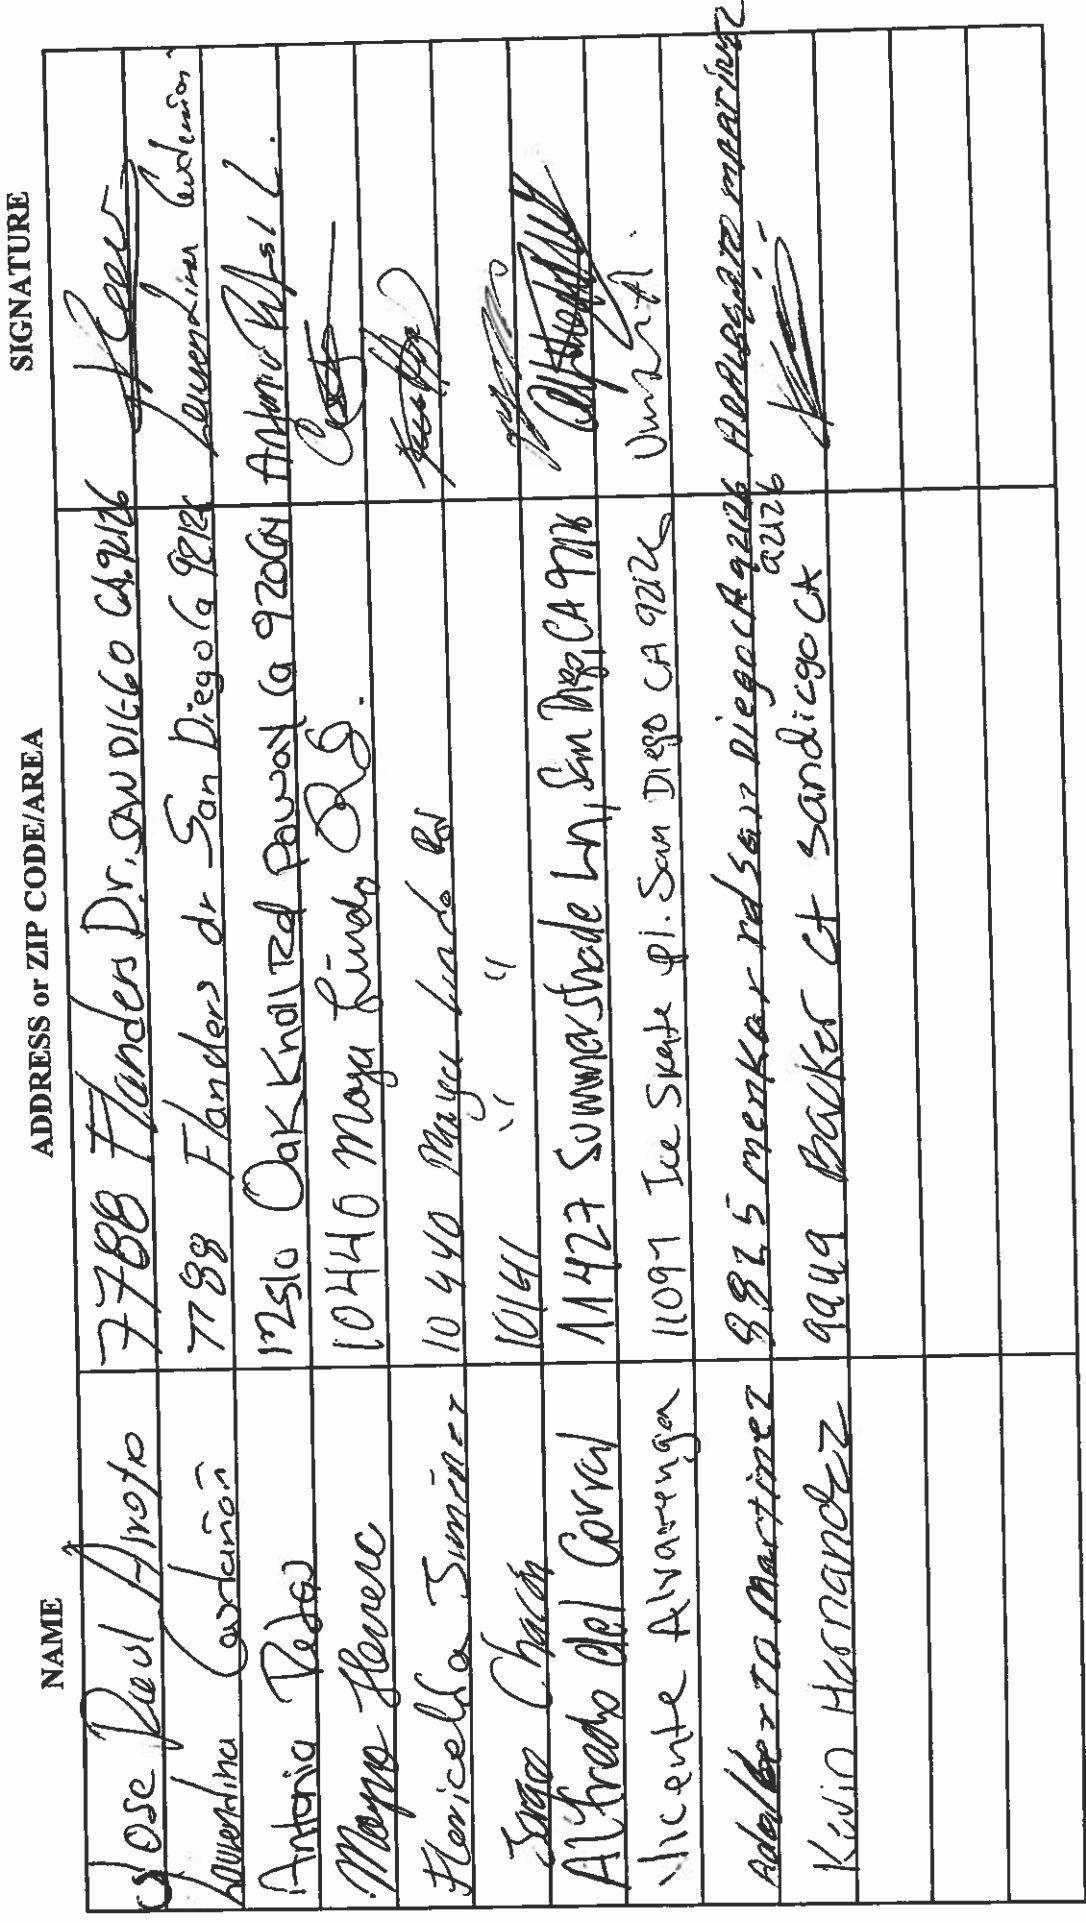 NAME ADDRESS or ZIP CODE/AREA SIGNATURE
Jose Raul 7788 Flanders Dr. SAN DIEGO CA. 92126
Laurentina Castañon 7788 Flanders dr San Diego Ca 92126
Antonia 12510 Oak Knoll Rd Poway Ca 92064 Antonia
Mayra Herrera 10440 Maya Linda Rd.
Jimenez 10440 Maya Linda Rd
Chacon 10141 " "
Alfredo del Corral 11427 Summershade Ln, San Diego, CA 92126
Vicente Alvarenga 11097 Ice Skate pl. San Diego CA 92126
Adalberto Martinez 8825 menkar rd San Diego CA 92126 Adalberto martinez
Kevin Hernandez 9949 Backer Ct Sandiego CA 92126